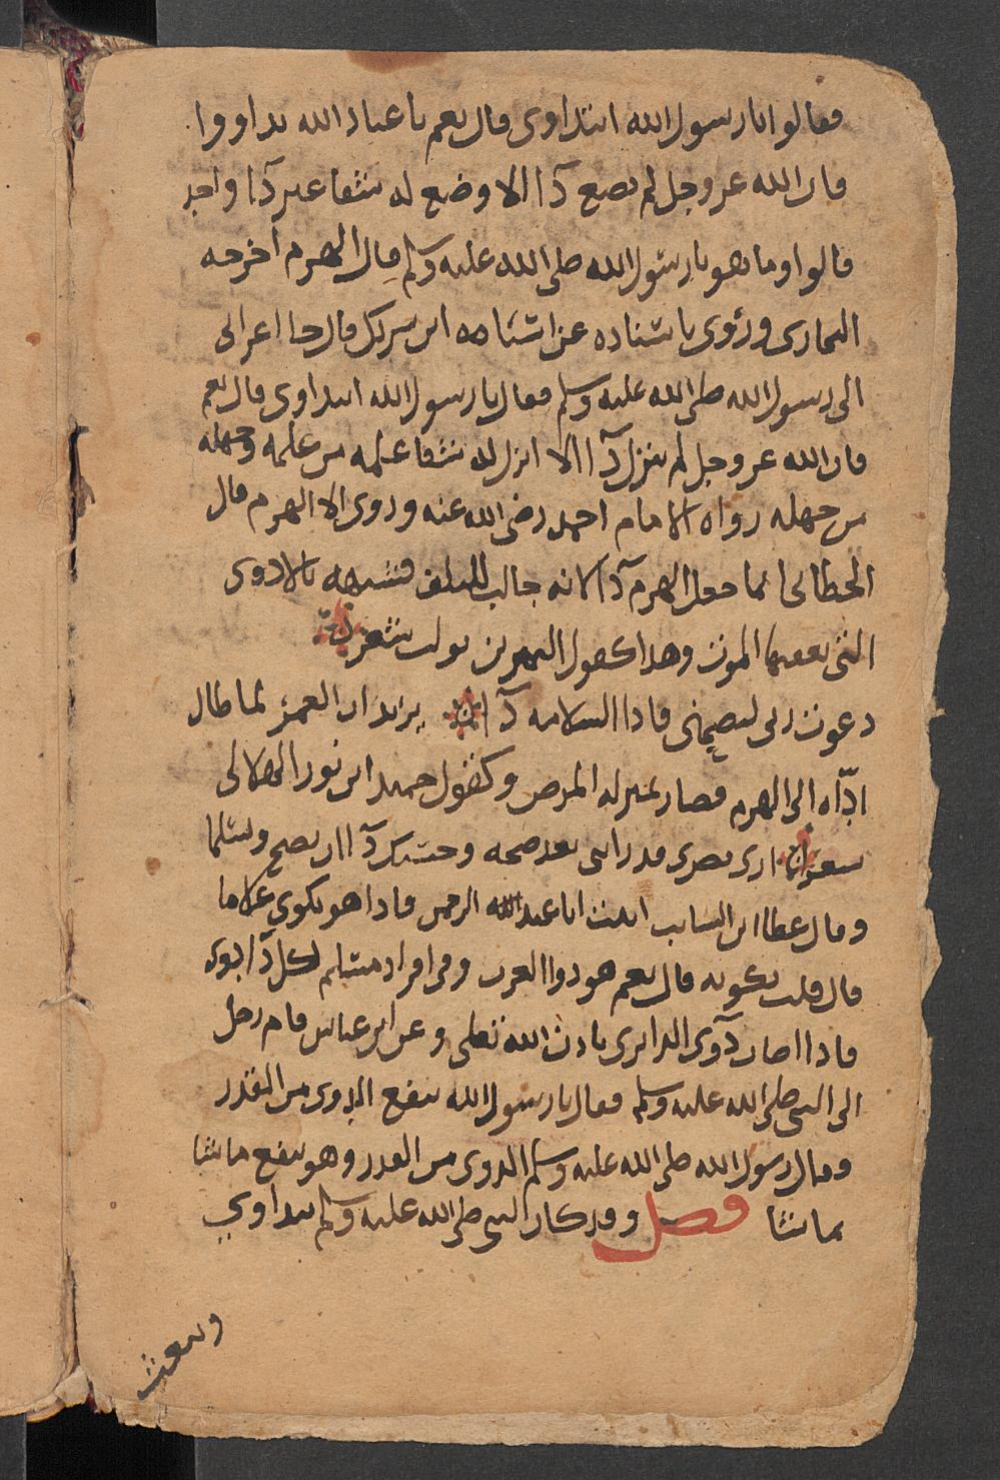 فقالوا يا رسول الله انتداوى قال نعم يا عباد الله تداووا
فان الله عز وجل لم يضع دآا الا وضع له شفا غير دآا واحد
قالوا وما هو يا رسول الله صلى الله عليه وسلم قال الهرم اخرجه
البخارى وروى باسناده عن اسامه ابن سريك قال جا اعرابى
الى رسول الله صلى الله عليه وسلم فقال يا رسول الله انتداوى قال نعم
فان الله عز وجل لم ينزل دآا الا انزل له شفا علمه من علمه وجهله
من جهله رواه الامام احمد رضى الله عنه وروى الا الهرم قال
الخطابى انما جعل الهرم دآا لانه جالب للتلف فشبهه بالادوى
التى يعقبها الموت وهذا كقول النمر بن تولب شعر
دعوت ربى ليصحنى فاذا السلامه دآا يريد ان العمر لما طال
ادّاه الى الهرم فصار بمنزله المرض وكقول حميد ابن ثور الهلالى
شعر ارى بصرى قد رابنى بعد صحه وحسبك دآا ان تصح وتسلما
وقال عطا ابن السايب اتيت ابا عبد الله الرحمن فاذا هو يكوي غلاما
قال قلت تكويه قال نعم هو دوا العرب وفى افراد مسلم لكل دآا دوى
فاذا اصاب دآوى الدا برى باذن الله تعلى وعن ابن عباس قام رجل
الى النبى صلى الله عليه وسلم فقال يا رسول الله ينفع الدوى من القدر
وقال رسول الله صلى الله عليه وسلم الدوى من القدر وهو ينفع من يشا
بما شا فصل وقد كان النبى صلى الله عليه وسلم يتداوي
وينعث